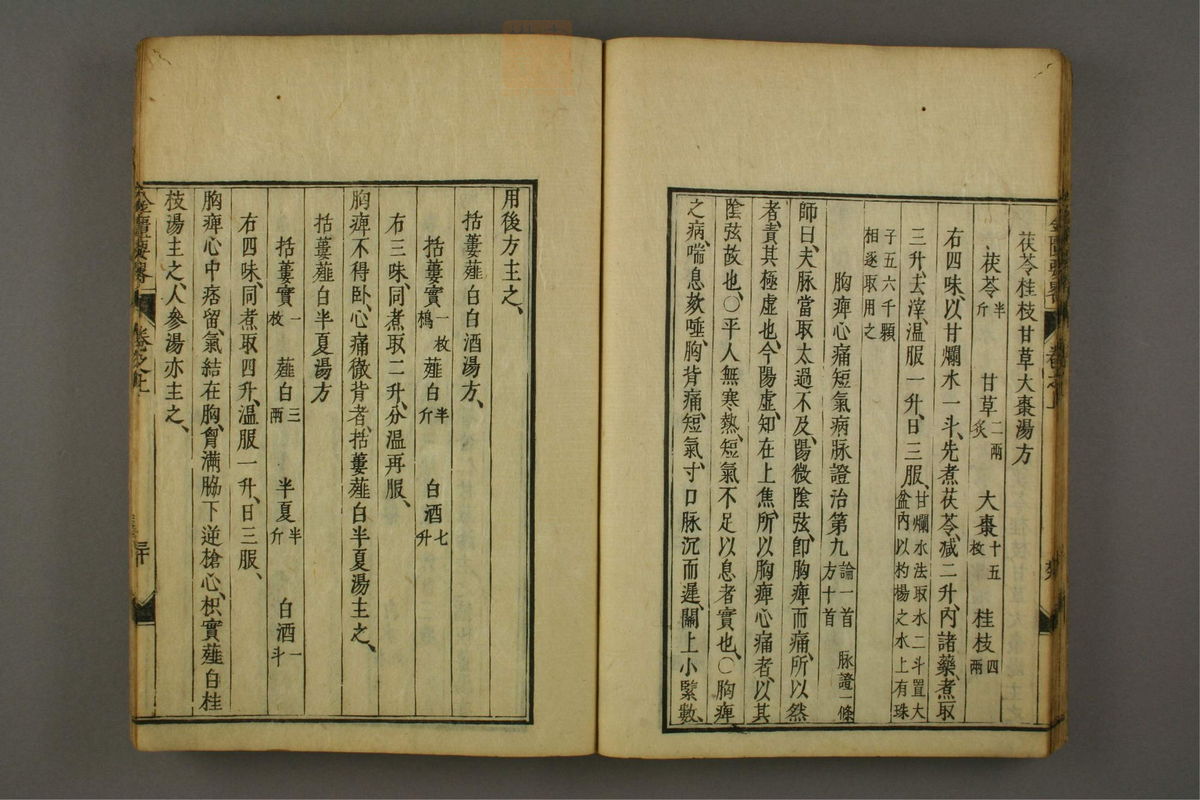 茯苓桂枝甘草大棗湯方
茯苓半斤 甘草二兩炙 大棗十五枚 桂枝四兩
右四味、以甘爛水一斗、先煮茯苓、减二升、內諸藥、煮取
三升、去滓、温服一升、日三服、甘爛水法取水二斗置大盆內以杓揚之水上有珠
子五六千顆相逐取用之
胸痺心痛短氣病脉證治第九論一首 脉證一條方十首
師曰、夫脉當取太過不及、陽微陰弦、即胸痺而痛、所以然
者、責其極虛也、今陽虛、知在上焦、所以胸痺心痛者、以其
陰弦故也、○平人無寒熱、短氣不足以息者實也、○胸痺
之病、喘息欬唾、胸背痛、短氣、寸口脉沉而遲、關上小緊數、
用後方主之、
括蔞薤白白酒湯方、
括蔞實一枚搗 薤白半斤 白酒七升
右三味、同煮取二升、分温再服、
胸痺不得卧、心痛徹背者、括蔞薤白半夏湯主之、
括蔞薤白半夏湯方
括蔞實一枚 薤白三兩 半夏半斤 白酒一斗
右四味、同煮取四升、温服一升、日三服、
胸痺心中痞留、氣結在胸、胷滿脇下逆槍心、枳實薤白桂
枝湯主之、人參湯亦主之、
金匱要畧 卷之上